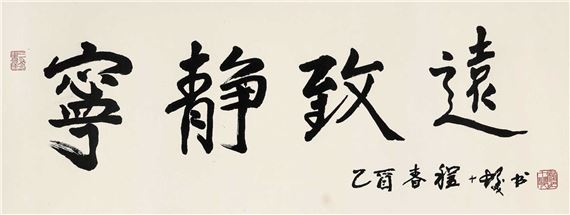 寧靜致遠
乙酉春程十髮书